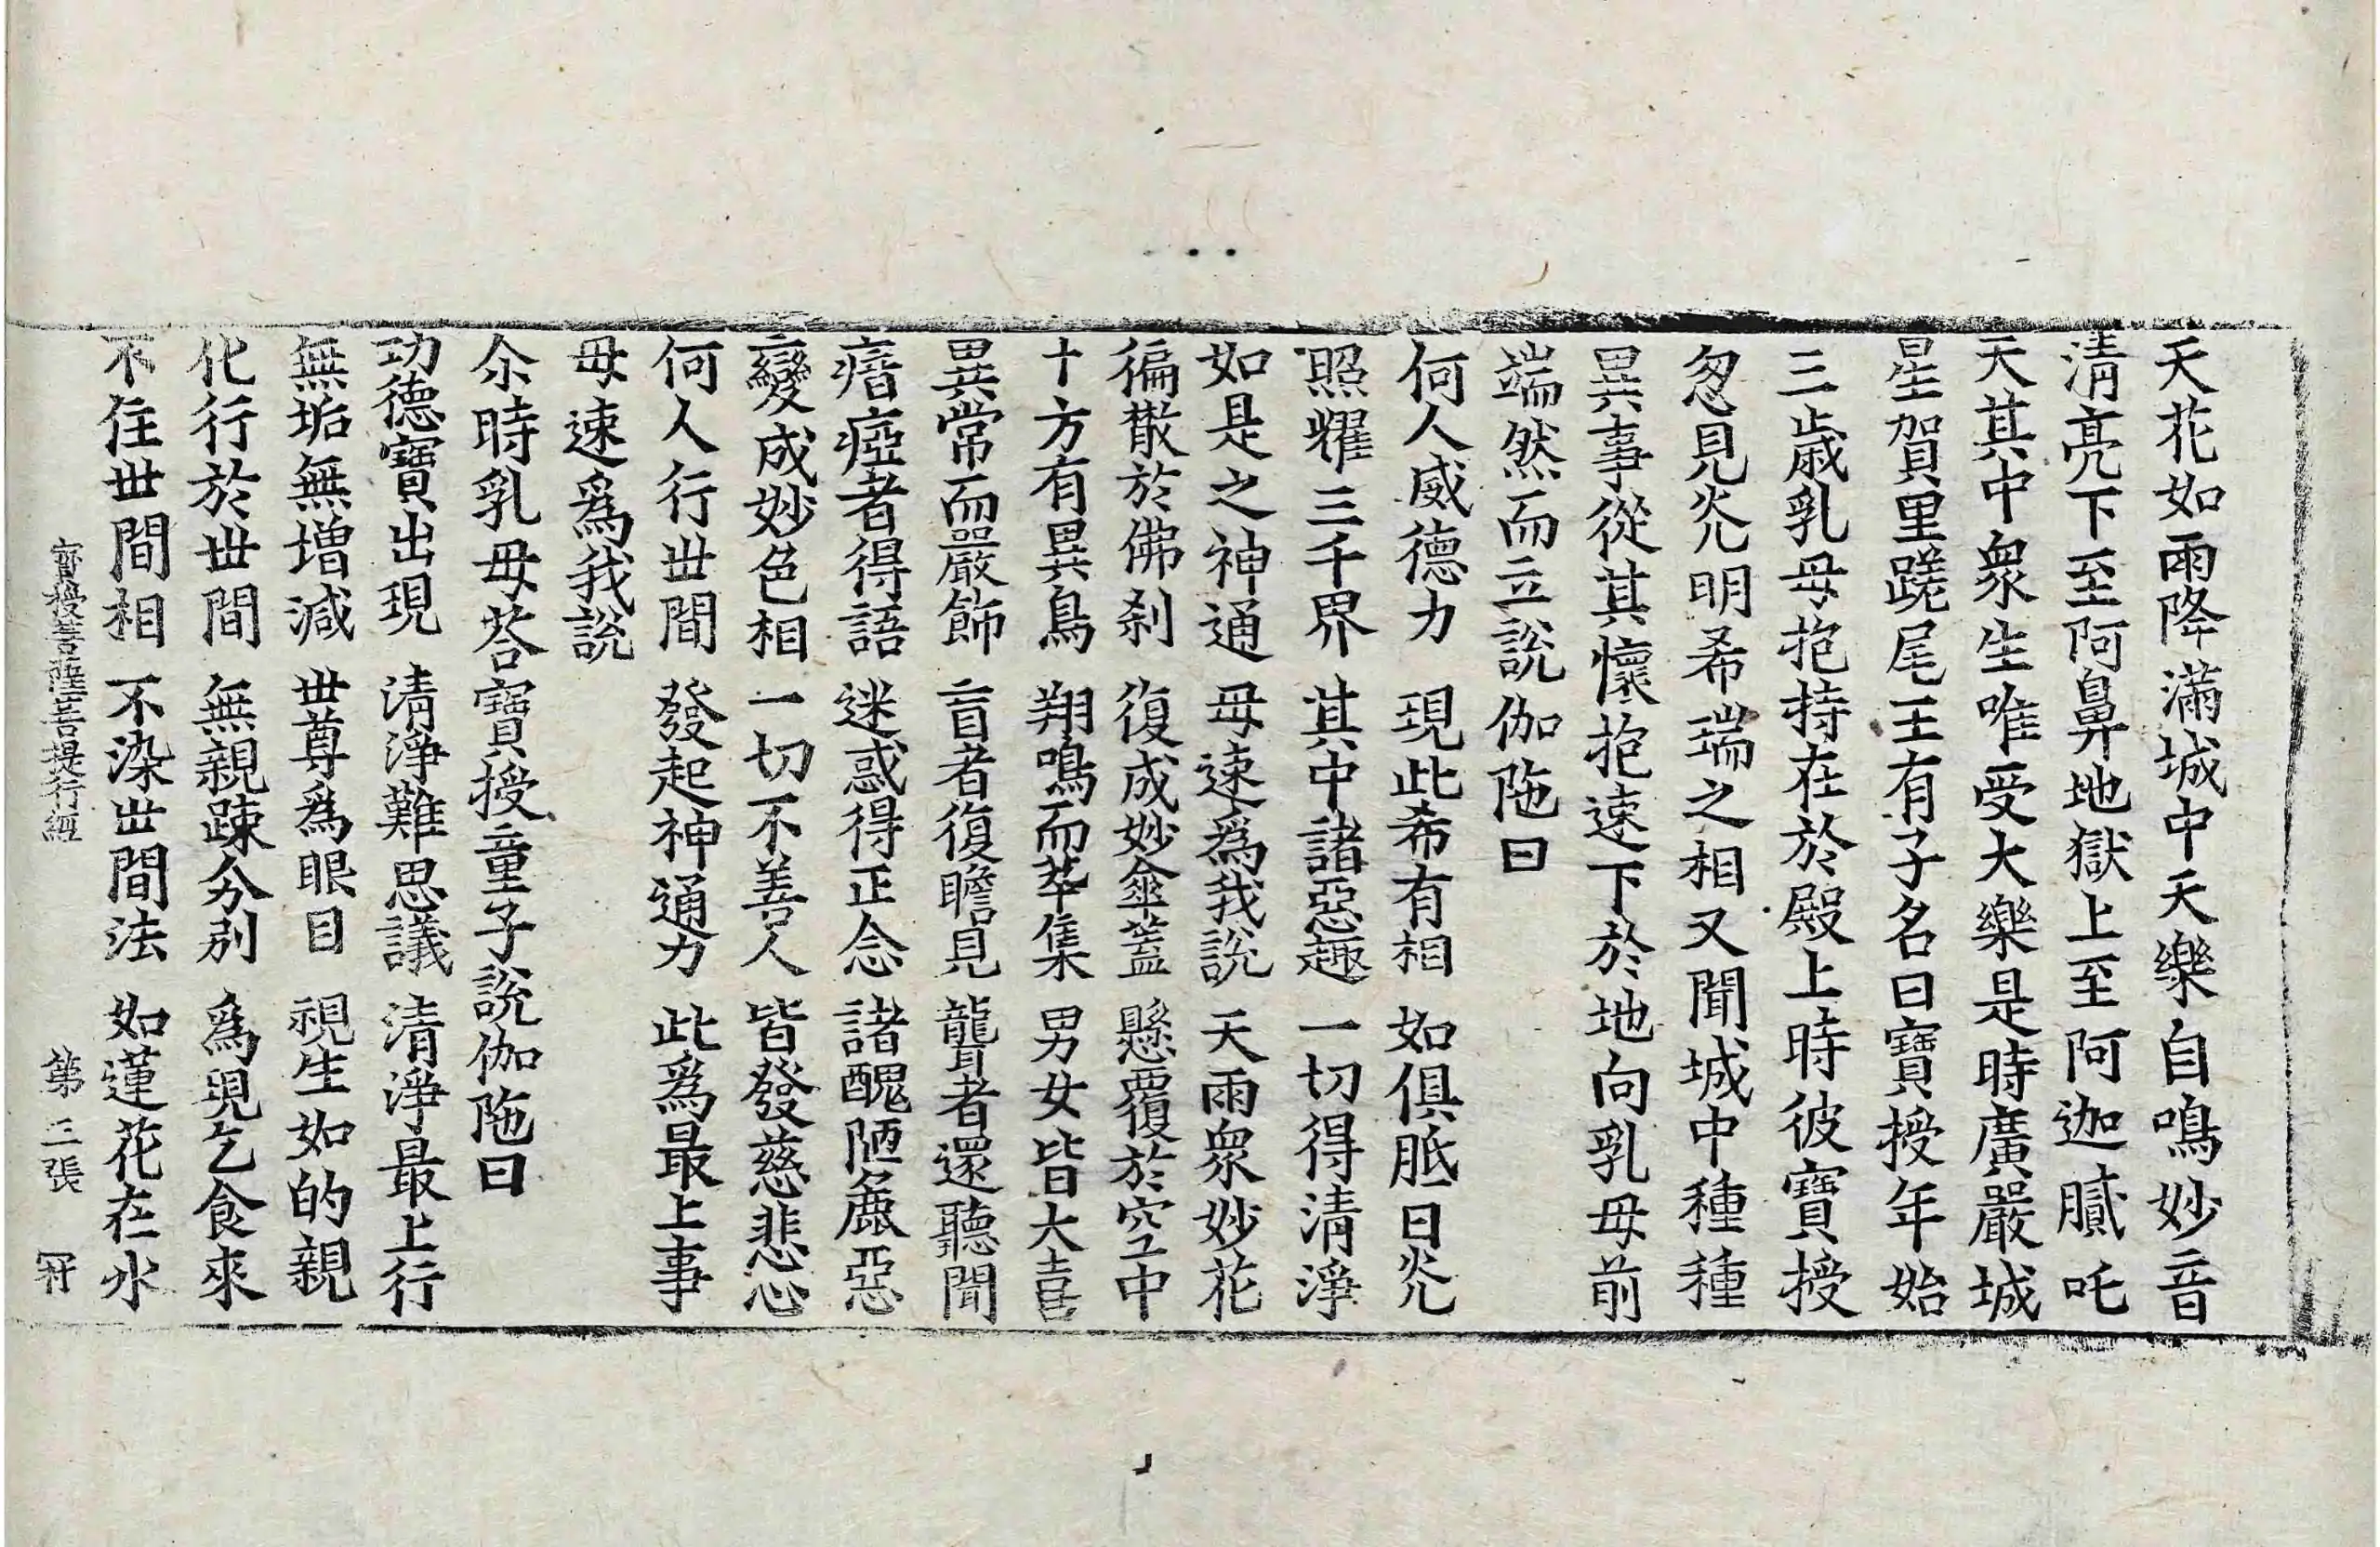 天花如雨降滿城中天樂自鳴妙音
清亮下至阿鼻地獄上至阿迦膩吒
天其中衆生唯受大樂是時廣嚴城
星賀里蹉尾王有子名曰寶授年始
三歳乳母抱持在於殿上時彼寶授
忽見炗明希瑞之相又聞城中種種
異事從其懷抱速下於地向乳母前
端然而立說伽陁曰
何人威德力　現此希有相　如俱胝日炗
照耀三千界　其中諸惡趣　一切得清淨
如是之神通　母速爲我說　天雨衆妙花
徧散於佛刹　復成妙傘蓋　懸覆於空中
十方有異鳥　翔鳴而萃集　男女皆大喜
異常而嚴飾　盲者復瞻見　聾者還聽聞
瘖瘂者得語　迷惑得正念　諸醜陋麁惡
變成妙色相　一切不善人　皆發慈悲心
何人行丗間　發起神通力　此爲最上事
母速爲我說
尒時乳母荅寶授童子說伽陁曰
功德寶出現　清淨難思議　清淨最上行
無垢無增減　丗尊爲眼目　視生如的親
化行於丗間　無親踈分別　爲現乞食來
不住丗間相　不染丗間法　如蓮花在水
寶授菩薩菩提行經　第三張　冠